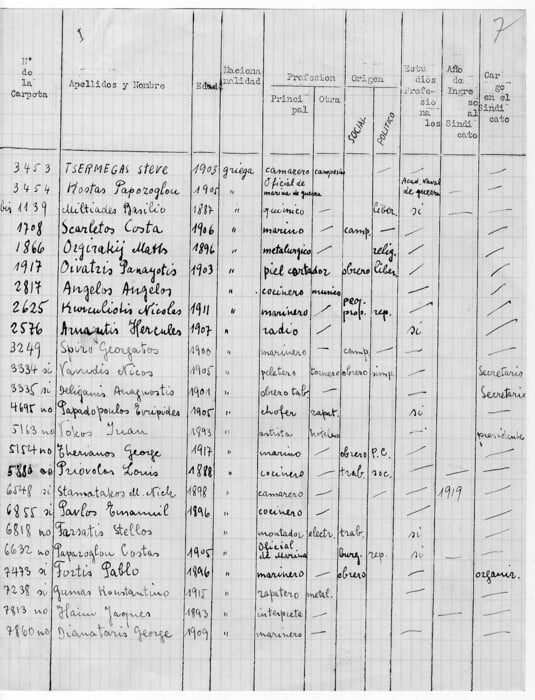 I 7
Nº de la Carpeta | Apellidos y Nombre | Edad | Nacionalidad | Profesion Principal | Otra | Origen SOCIAL | POLITICO | Estudios Profesionales | Año de Ingreso al Sindicato | Cargo en el Sindicato
3453 TSERMEGAS steve 1903 griega camarero campesino — — — — —
3454 Kostas Papozoglou 1905 " Oficial de marina de guerra — Acad. Naval de guerra — —
bis 1139 Miltiades Basilio 1887 " quimico — liber. si — —
1708 Scarletos Costa 1906 " marino — camp. — — —
1866 Ozgirakij Matts 1896 " metalurgico — relig. — —
1917 Oivatzis Panayotis 1903 " piel cortador obrero liber — —
2817 Angelos Angelos " cocinero — —
2625 Kurculiotis Nicolas 1911 " marinero — peq. prop. rep. — —
2576 Arnautis Hercules 1907 " radio — si —
3249 Spiro Georgatos 1900 " marinero — camp. — — —
3334 si Vavudis Nicos 1905 " peletero tornero obrero simp. — Secretario
3335 si Deligianis Anagnostis 1901 " obrero tab. — — Secretario
4695 no Papadopoulos Evripides 1905 " chofer zapat. — si —
5163 no Vokos Juan 1893 " artista — presidente
5154 no Therianos George 1917 " marino — obrero P.C. — —
5880 no Priovolos Louis 1888 " cocinero — trab. soc. — — —
6548 si Stamatakos M. Nick 1898 " camarero — — — — 1919 —
6855 si Pavlos Emanuil 1896 " cocinero — — —
6818 no Farsatis Stellos " montador electr. trab. si —
6632 no Papazoglou Costas 1905 " Oficial de Marina — burg. rep. si — —
7473 si Fortis Pablo 1896 " marinero — obrero — organiz.
7238 si Gumas Konstantino 1915 " zapatero metal. — —
7813 no Haim Jaques 1893 " interprete — — — —
7860 no Dianataris George 1909 " marinero — — —